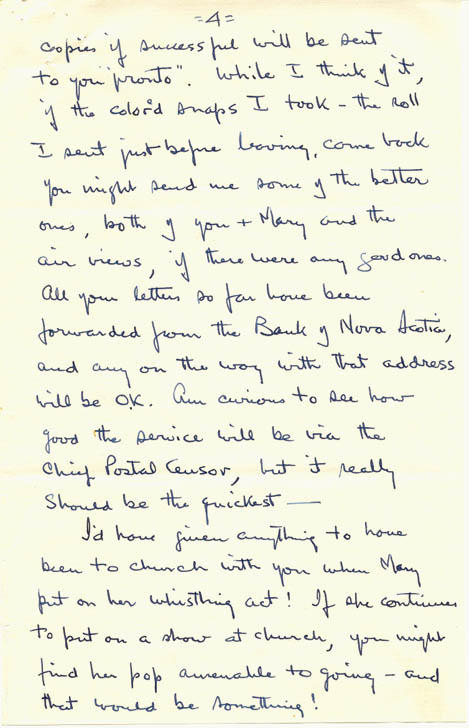 =4=
copies if successful will be sent
to you "pronto". While I think of it,
if the color'd snaps I took - the roll
I sent just before leaving, come back
you might send me some of the better
ones, both of you + Mary and the
air views, if there were any good ones.
All your letters so far have been
forwarded from the Bank of Nova Scotia,
and any on the way with that address
will be O.K. Am curious to see how
good the service will be via the
Chief Postal Censor, but it really
should be the quickest —
I'd have given anything to have
been to church with you when Mary
put on her whistling act! If she continues
to put on a show at church, you might
find her pop amenable to going - and
that would be something!